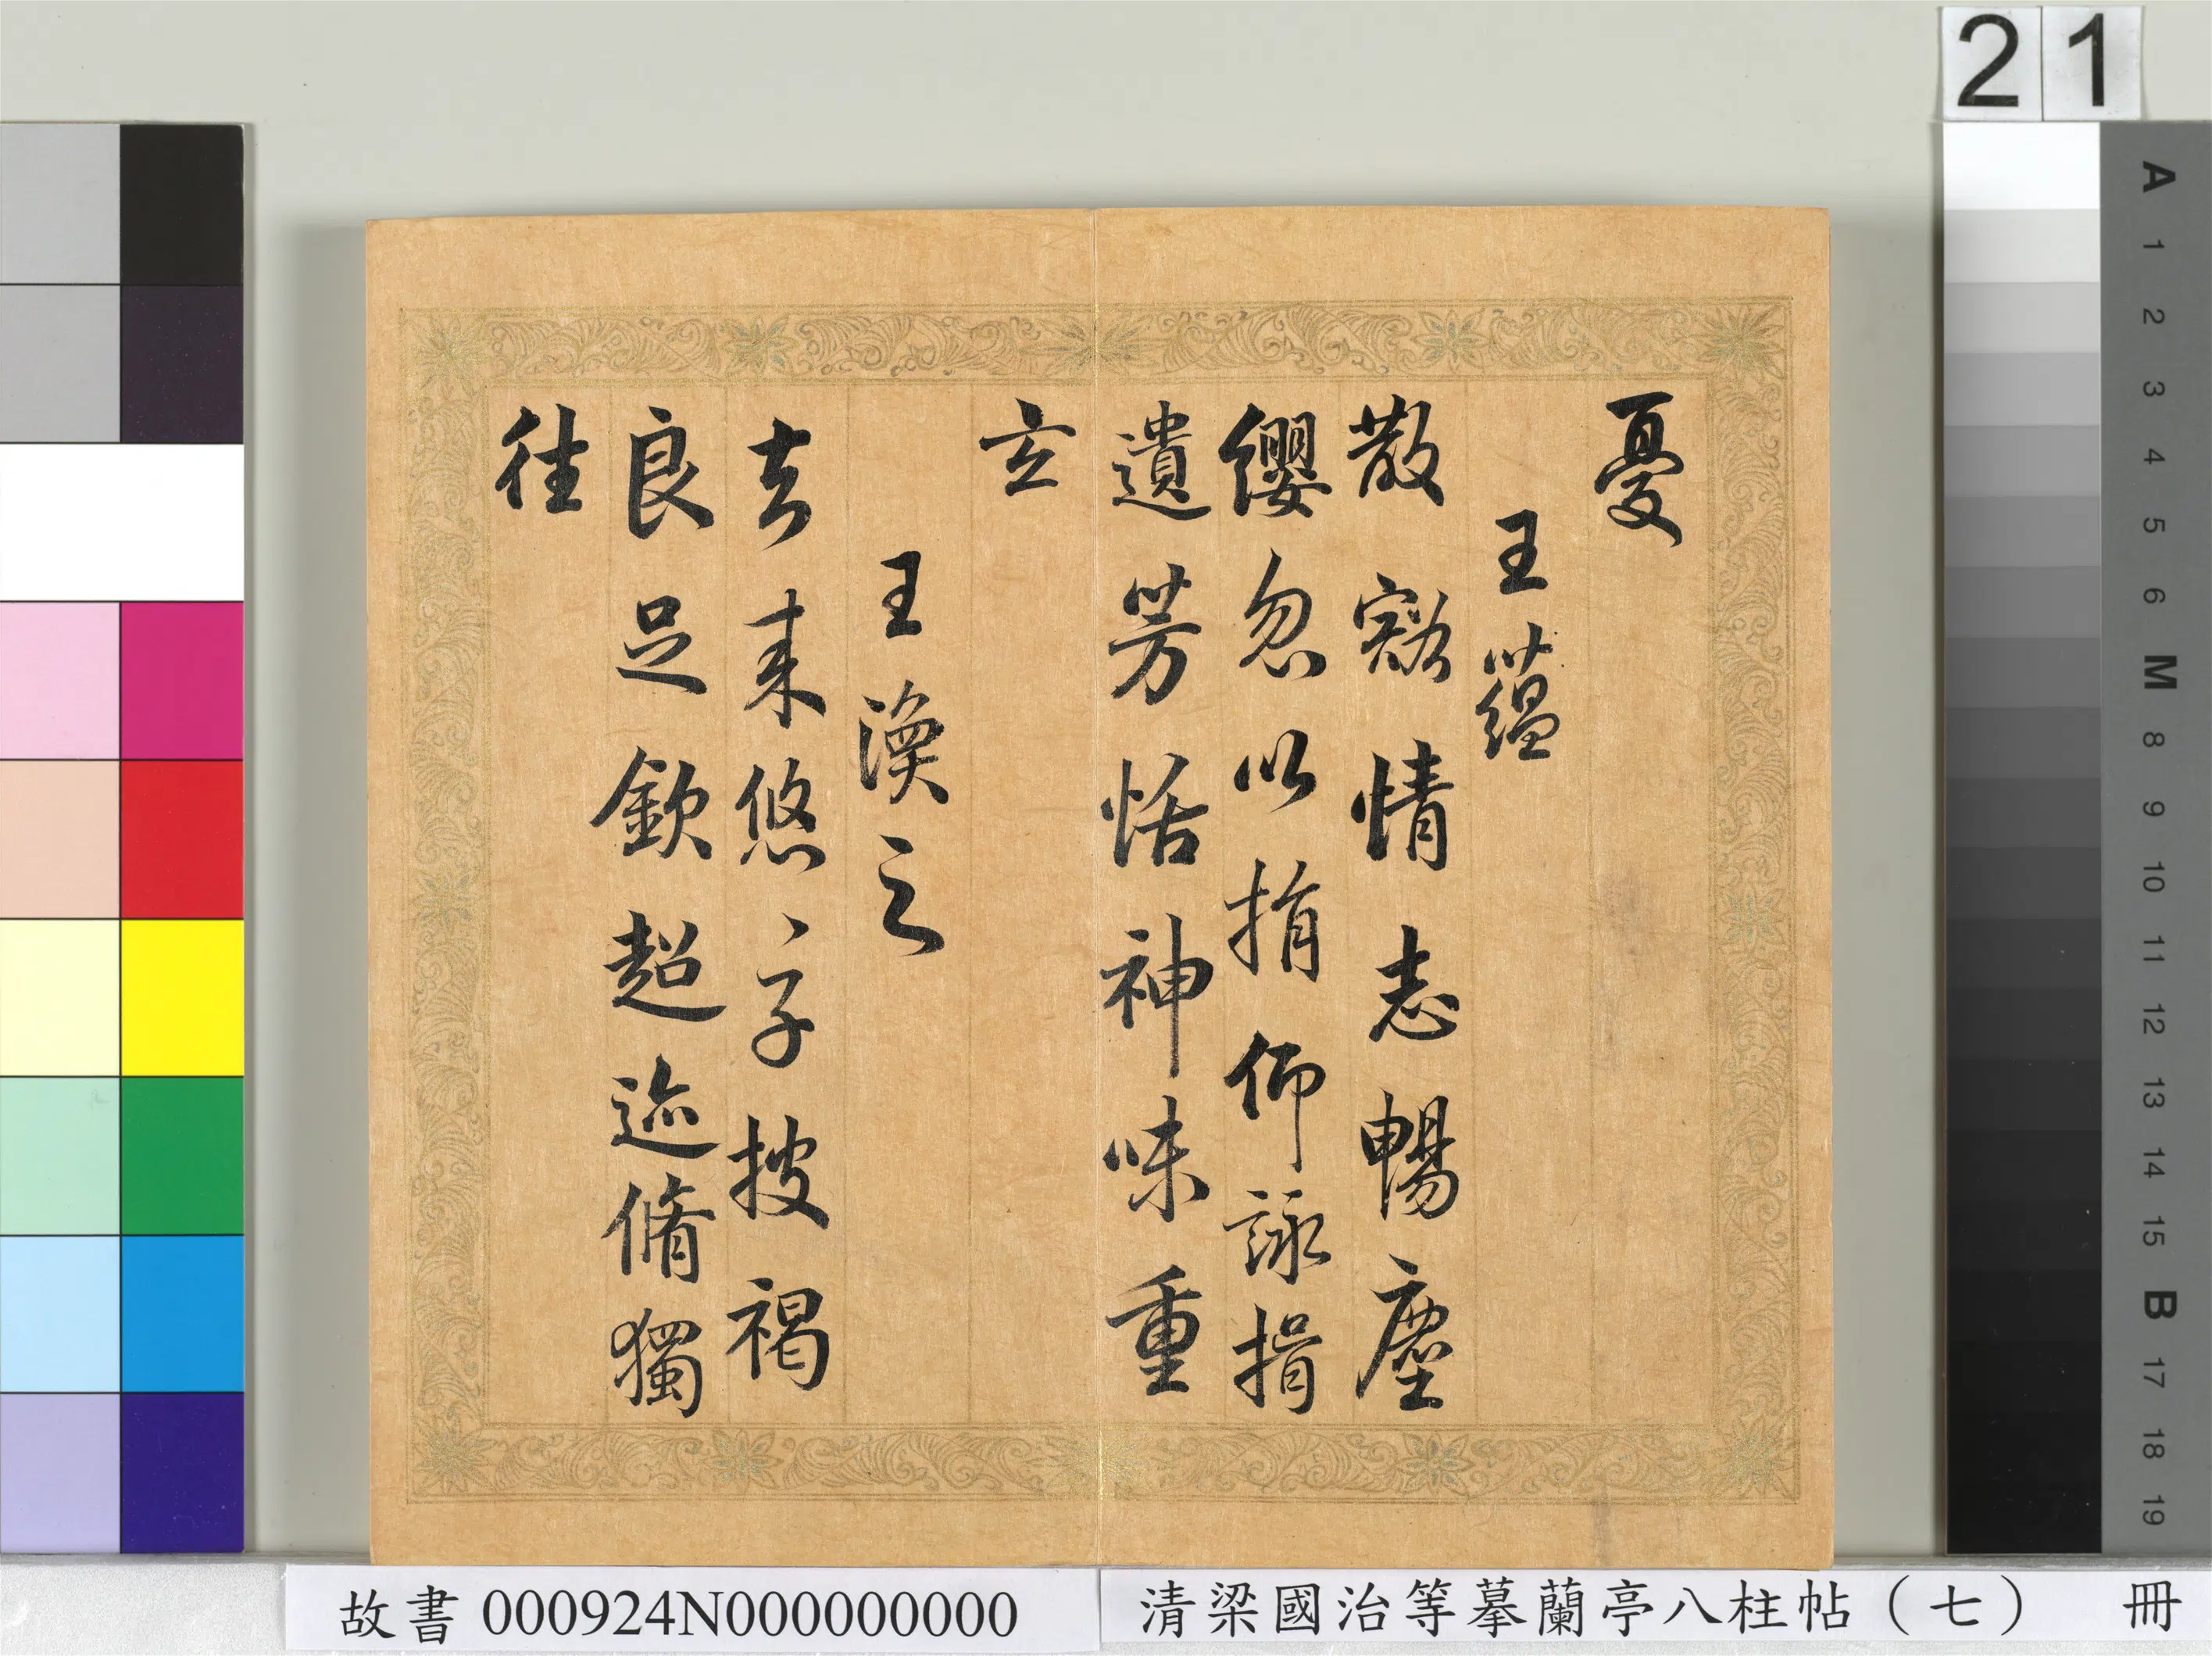 21
憂
王蘊
散豁情志暢塵
纓忽以捐仰詠揖
遺芳恬神味重
玄
王渙之
去来悠〻子披褐
良足欽超迹脩獨
往
A 1 2 3 4 5 6 M 8 9 10 11 12 13 14 15 B 17 18 19
故書 000924N000000000
清梁國治等摹蘭亭八柱帖（七） 冊